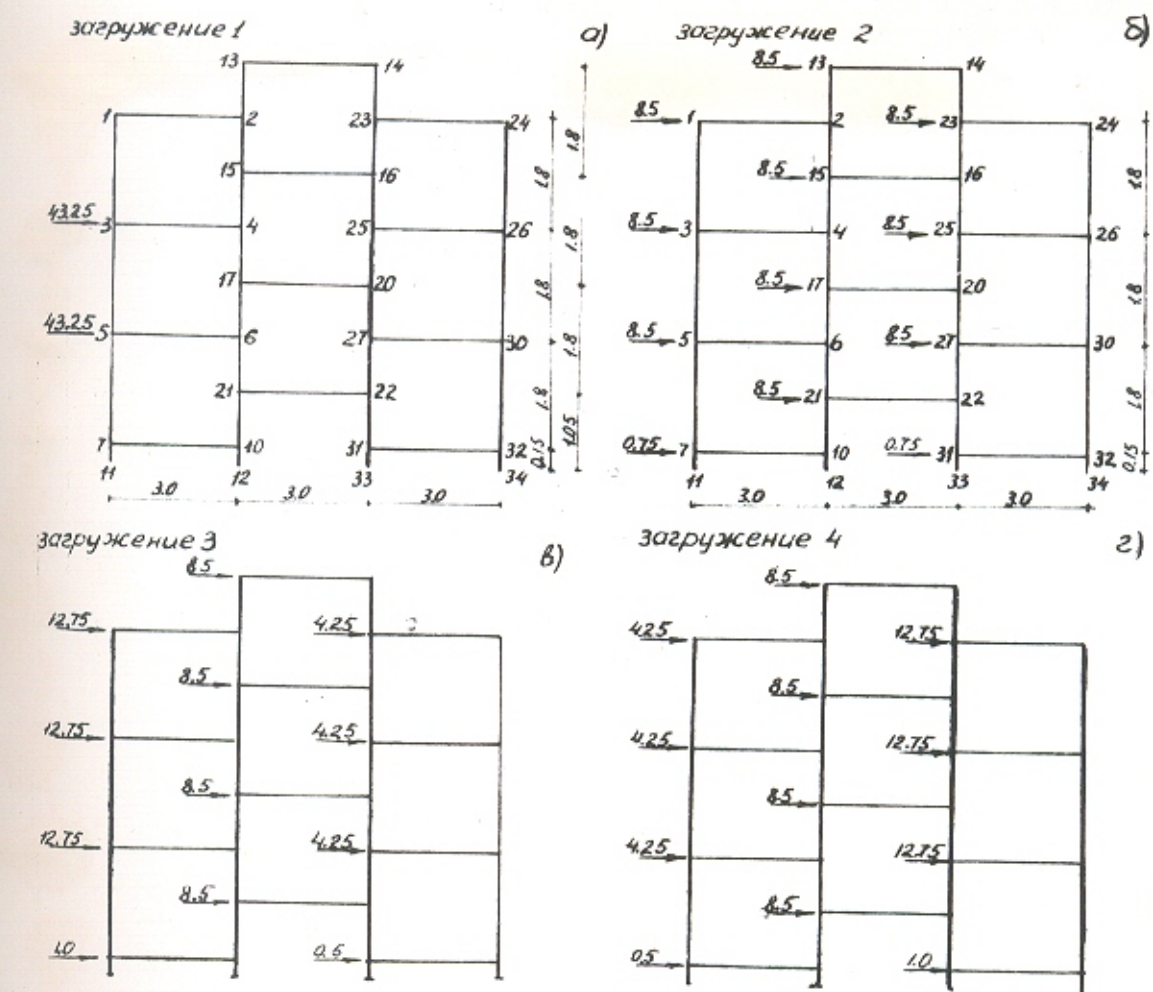 загружение 1 а)
13 14
1 2 23 24
1.8
15 16
1.8
43.25 3 4 25 26
1.8
17 20
1.8
43.25 5 6 27 30
1.8
21 22
1.8
7 10 31 32
0.15 1.05
11 12 33 34
3.0 3.0 3.0
загружение 2 б)
8.5 13 14
8.5 1 2 8.5 23 24
8.5 15 16
1.8
8.5 3 4 8.5 25 26
8.5 17 20
1.8
8.5 5 6 8.5 27 30
8.5 21 22
1.8
0.75 7 10 0.75 31 32
0.15
11 12 33 34
3.0 3.0 3.0
загружение 3 в)
8.5
12.75 4.25
8.5
12.75 4.25
8.5
12.75 4.25
8.5
1.0 0.5
загружение 4 г)
8.5
4.25 12.75
8.5
4.25 12.75
8.5
4.25 12.75
8.5
0.5 1.0